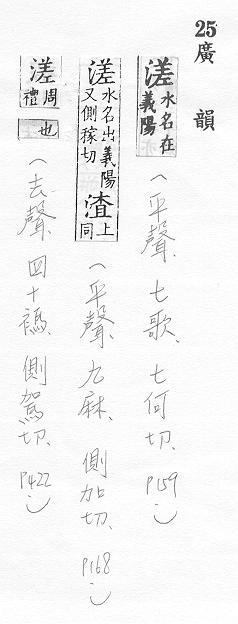 25廣韻
溠水名在義陽（平聲、七歌、七何切、P159）
溠水名出義陽又側稼切渣上同（平聲、九麻、側加切、P168）
溠周禮也（去聲、四十禡、側駕切、P422）